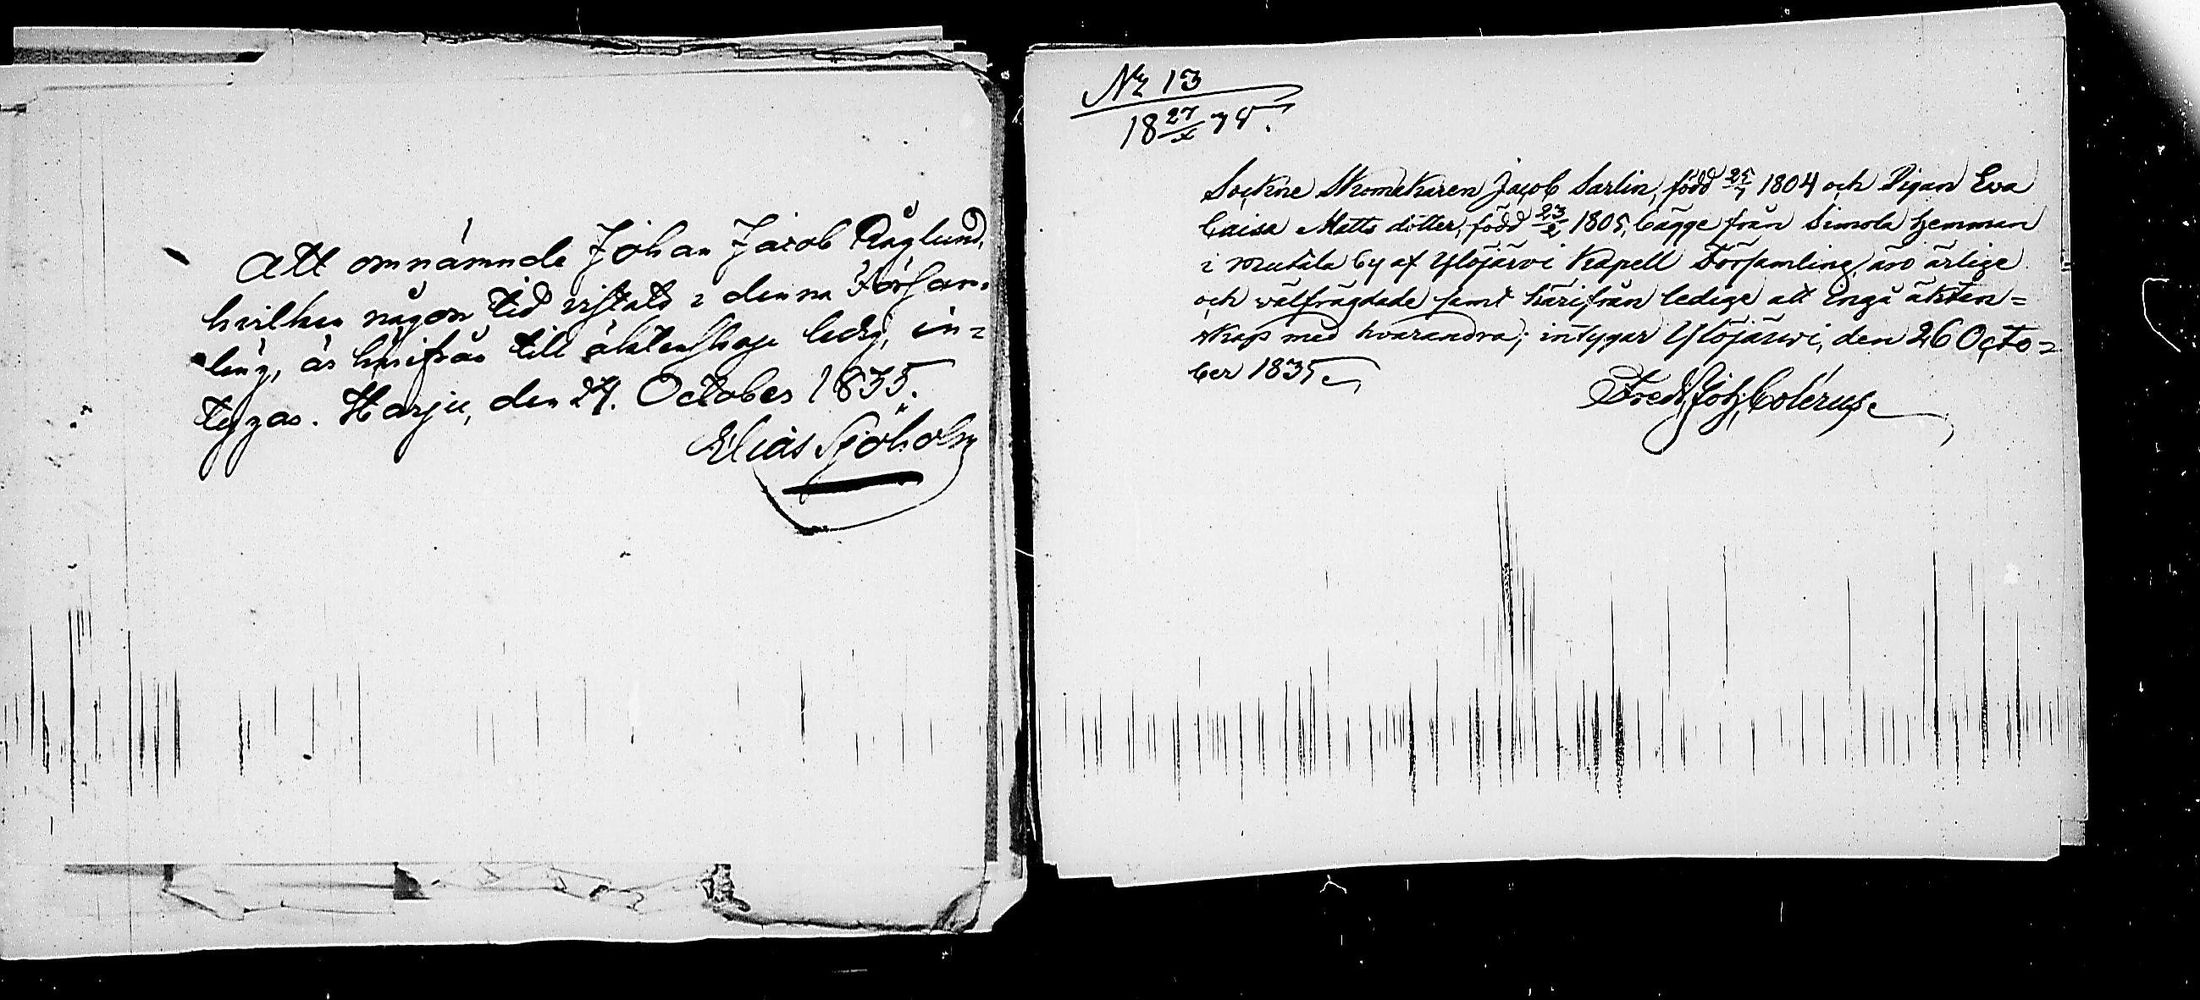 Att omnämnde Johan Jacob Råglund,
hvilken någon tid vistats i denna Försam-
ling, är härifrån till äktenskap ledig, in=
tygas. Harju, den 24. October 1835.
Elias Sjöholm
No 13
18 27/x 35.
Sockne Skomakaren Jacob Sarlin, född 25/7 1804 och Pigan Eva
Caisa Matts dotter, född 23/2 1805, bägge från Simola hemman
i Mutala by af Ylöjärvi Kapell Församling, äro ärlige
och välfrägdade samt härifrån ledige att ingå äkten=
skap med hvarandra; intygar Ylöjärvi, den 26 Octo=
ber 1835
Fredr. Joh. Colérus.